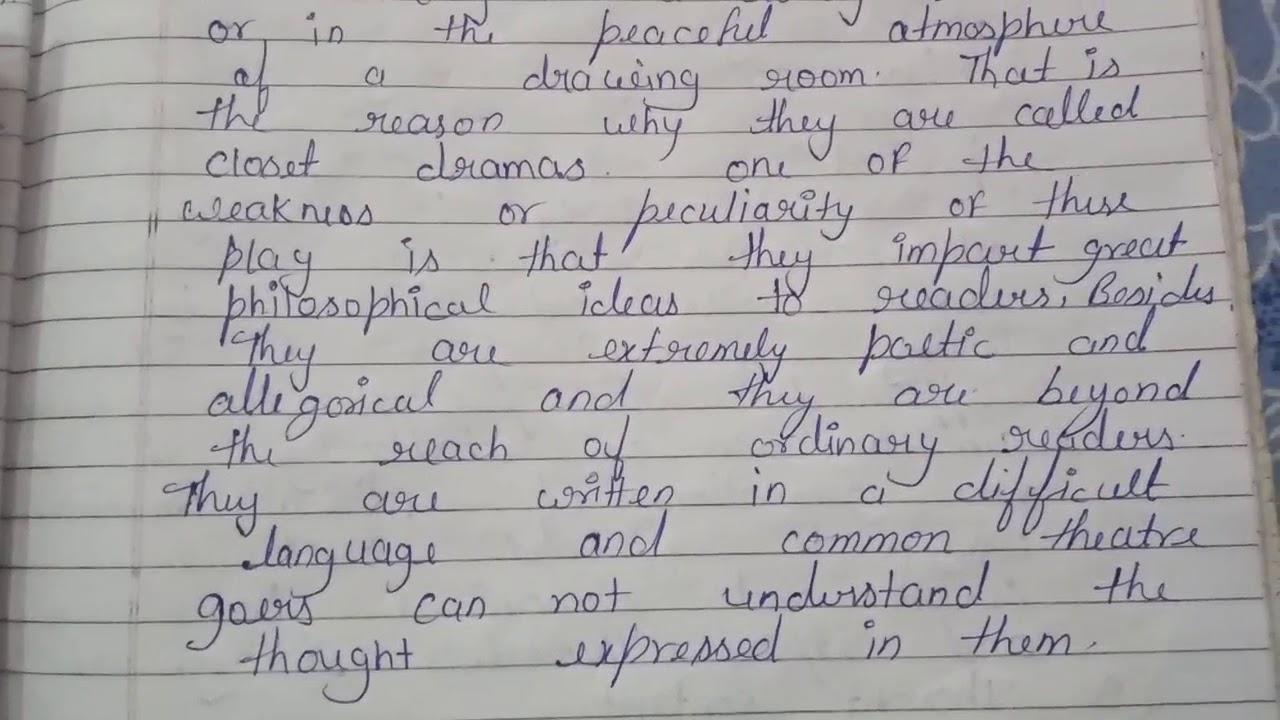 or in the peaceful atmosphere
of a drawing room. That is
the reason why they are called
closet dramas. one of the
weakness or peculiarity of these
play is that they impart great
philosophical ideas to readers, Besides
They are extremely poetic and
allegorical and they are beyond
the reach of ordinary readers.
They are written in a difficult
language and common theatre
goers can not understand the
thought expressed in them.